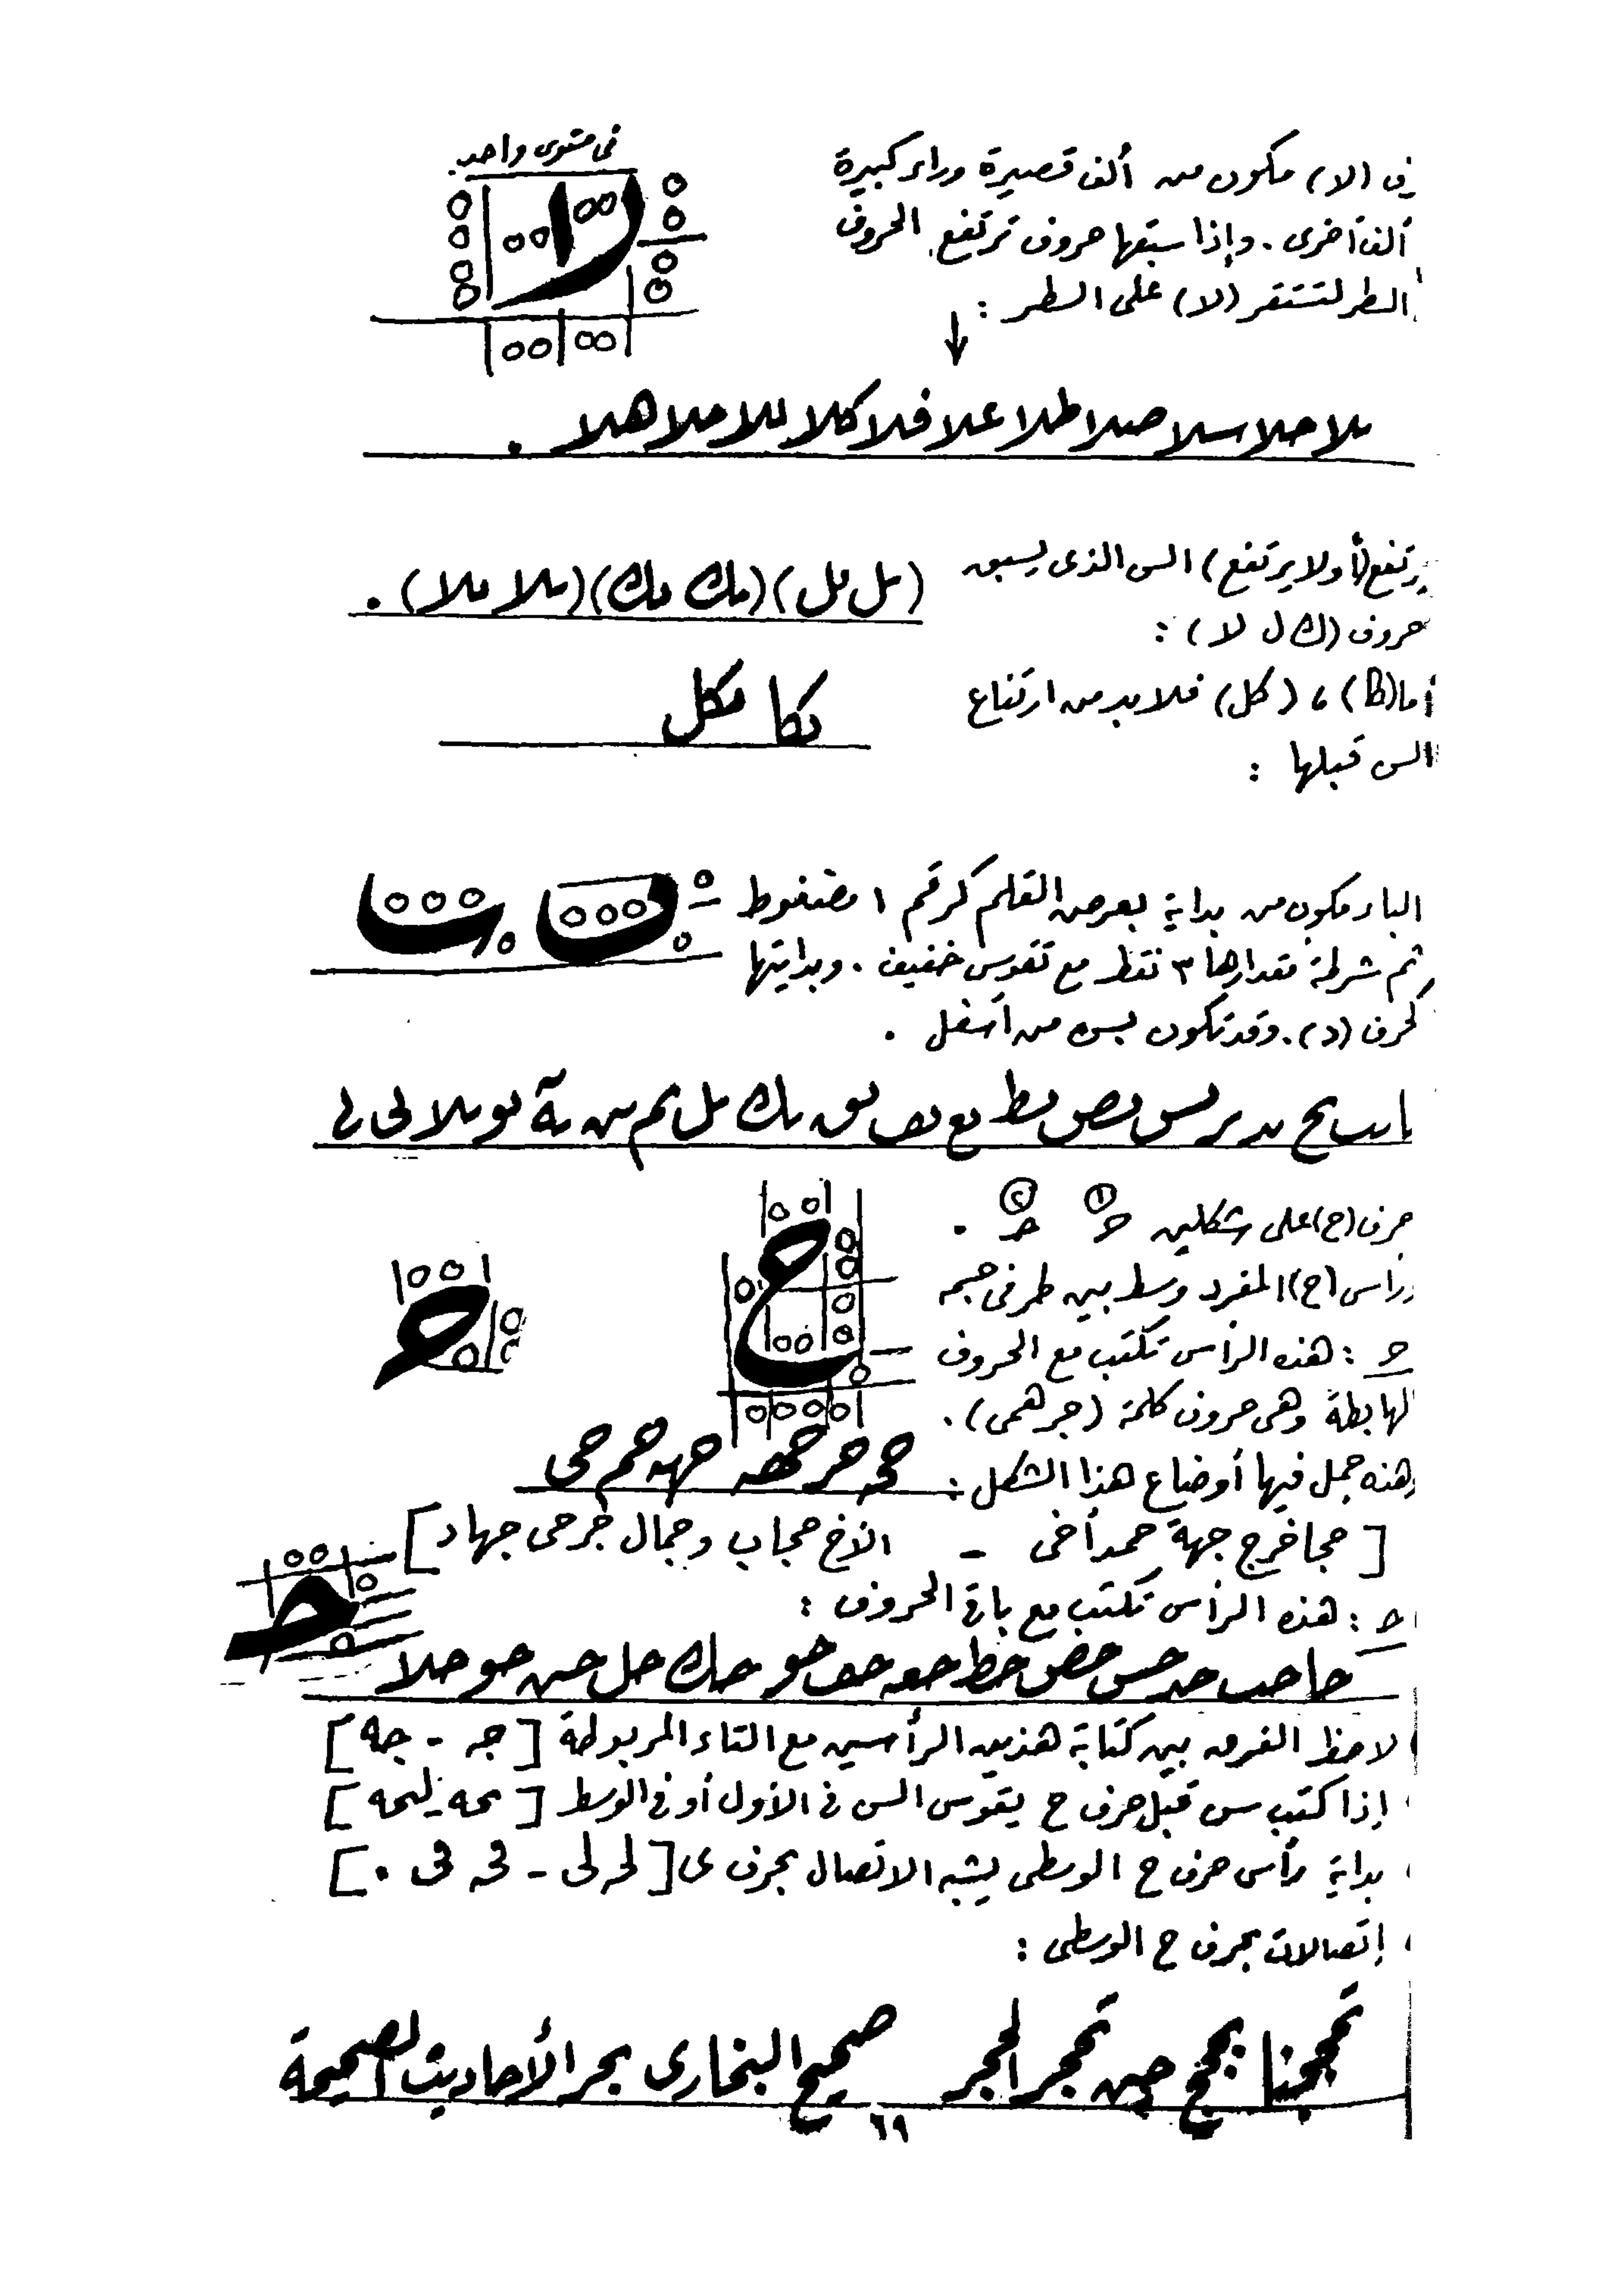 فى مستوى واحد
فى (لا) مكون من ألف قصيرة وراء كبيرة
ألف أخرى . وإذا سبقها حروف ترتفع الحروف
السطر لتستقر (لا) على السطر :
بلا حلا سلا صلا طلا علا فلا كلا للا ملا هلا .
يرتفع (أولا يرتفع) السن الذى يسبق (بل بل) (بك بك) (بلا بلا) .
حروف (ك ل لا) :
أما (كا) ، (كل) فلا بد من ارتفاع بكا بكل
السن قبلها :
الباء مكون من بداية بعرض القلم كرقم ١ مضغوط
ثم شرطة مقدارها ٣ نقط مع تقوس خفيف . وبدايتها
كحرف (د) . وقد تكون بسن من أسفل .
با بب بح بد بر بس بص بط بع بف بق بك بل بم بن بة بو بلا بى بى
حرف (ح) على شكلين حـ ① حـ ② .
ورأس (ح) المفرد وسط بين طرفى جسمه
حـ : هذه الرأس تكتب مع الحروف
الهابطة وهى حروف كلمة (جرهمى) .
وهذه جمل فيها أوضاع هذا الشكل : حح حر حهه حهه حم حى
[ حجا خرج جهة حمد أخى - الأخ حجاب وجمال جرحى جهاد ]
حـ : هذه الرأس تكتب مع باقى الحروف :
حا حب حد حس حص حط حعـ حف حو حك حل حن حو حلا
لاحظ الفرق بين كتابة هذين الرأسين مع التاء المربوطة [ جه - جه ]
إذا كتب سن قبل حرف ح يقوس السن فى الأول أو فى الوسط [ بحه يلبحه ]
بداية رأس حرف ح الوسطى يشبه الاتصال بحرف ى [ لحـ لى - فحـ فى . ]
إتصالات بحرف ح الوسطى :
تحججنا بحجج حين تحجر الحجر صحيح البخارى بحر الأحاديث الصحيحة
٦٩